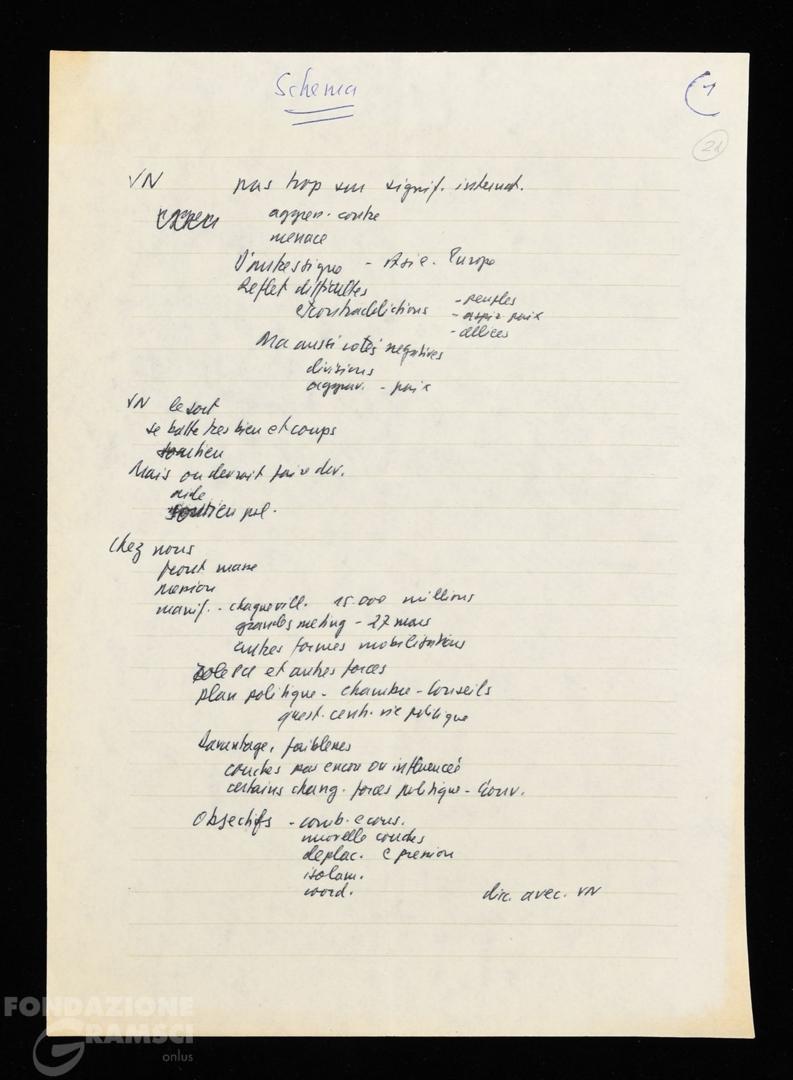 Schema
1
21
VN pas trop sur signif. internat.
aggres. contre
menace
- Asie - Europe
Reflet difficultés
et contraddictions - peuples
- aspir paix
- alliés
Ma aussi cotés négatives
divisions
aggrav. - paix
VN le sort
se batte tres bien et coups
soutien
Mais on devrait faire dev.
aide
soutien pol.
Chez nous
front masse
pression
manif. - chaque vill. 15.000 millions
grandes meting - 27 mars
autres formes mobilisations
role PCI et autres forces
plan politique - Chambre - Conseils
quest. centr. vie politique
Davantage, faiblesses
couches pas encore ou influencé
certains chang. forces politique - Gouv.
Objectifs -
nouvelle couches
deplac. e pression
isolam.
coord. dir. avec. VN
FONDAZIONE
GRAMSCI
onlus